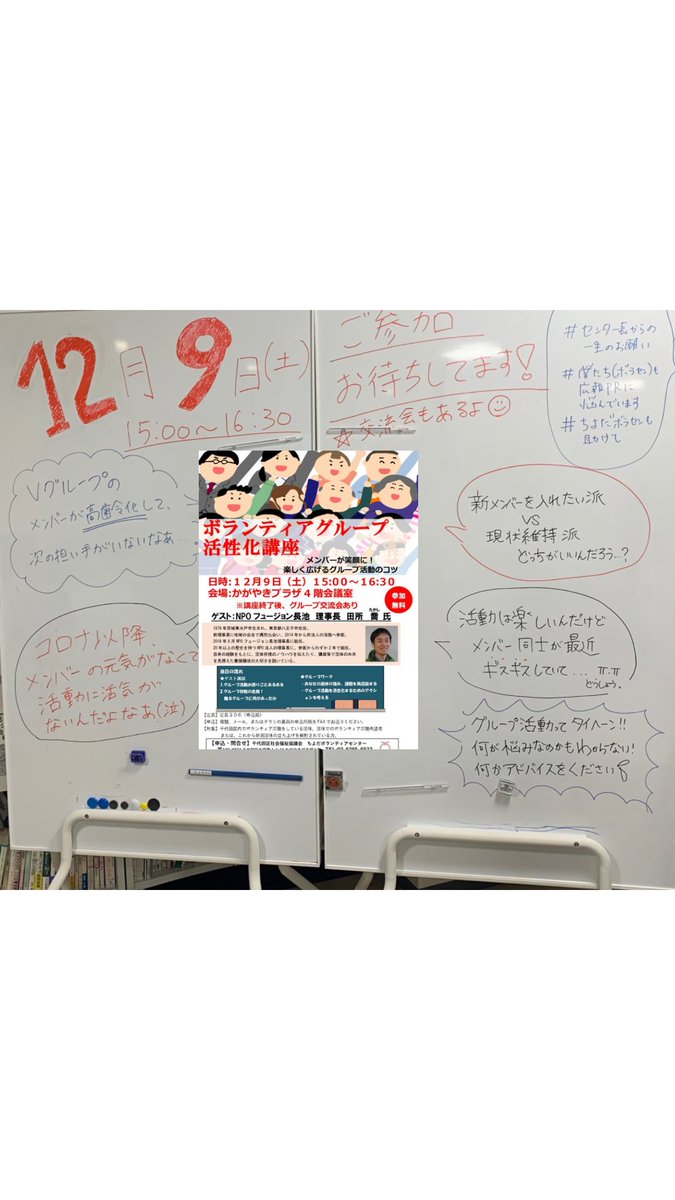 12月9日(土)
15:00〜16:30
ご参加
お待ちしてます!
☆交流会もあるよ☺
#センター長からの
一生のお願い
#僕たち(ボラセン)も
広報PRに
悩んでいます
#ちよだボラセンも
助けて
Vグループの
メンバーが高齢化して、
次の担い手がいないなぁ…
コロナ以降
メンバーの元気がなくて
活動に活気が
ないんだよなあ(泣)
ボランティアグループ
活性化講座
メンバーが笑顔に!
楽しく広げるグループ活動のコツ
日時:12月9日(土) 15:00~16:30
会場:かがやきプラザ4階会議室
※講座終了後、グループ交流会あり
参加
無料
ゲスト:NPOフュージョン長池 理事長 田所 喬 氏
たかし
当日の流れ
◆ゲスト講話
◆グループワーク
【定員】定員30名(申込順)
【申込・問合せ】千代田区社会福祉協議会 ちよだボランティアセンター
新メンバーを入れたい派
VS
現状維持派
どっちがいいんだろう…?
活動は楽しいんだけど
メンバー同士が最近
ギスギスしていて… π-π
どうしよう。
グループ活動ってタイヘーン!!
何が悩みなのかもわからない!
何かアドバイスをください